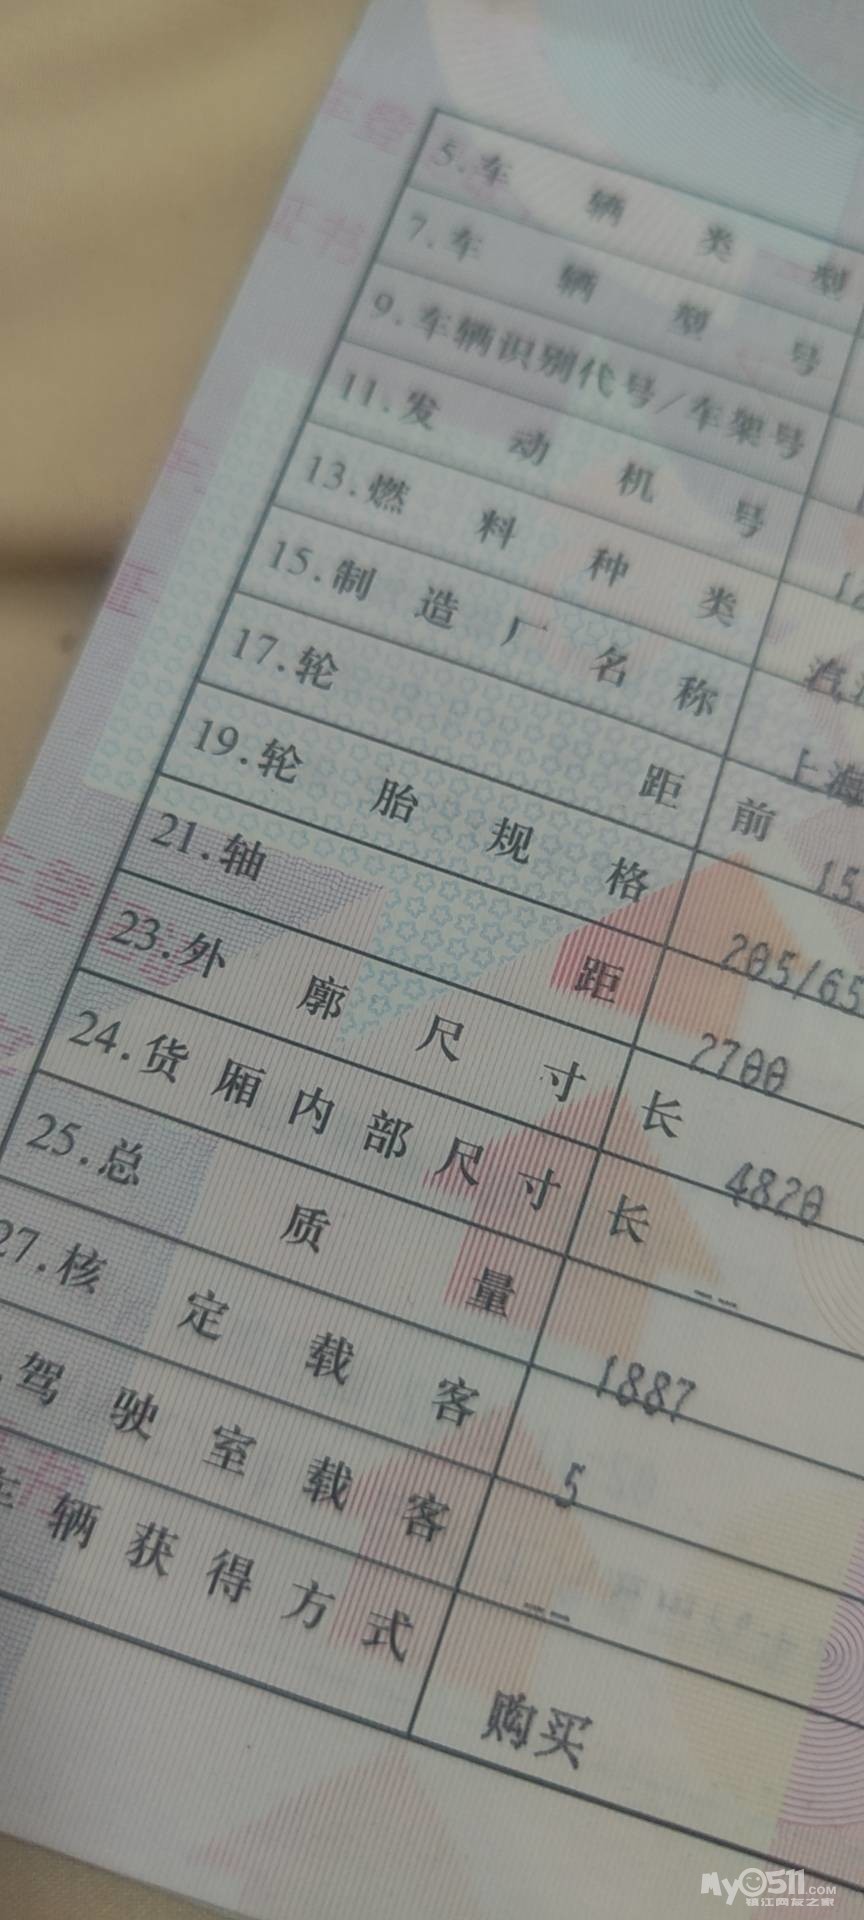 5.车辆类型
7.车辆型号
9.车辆识别代号/车架号
11.发动机号
13.燃料种类 汽
15.制造厂名称 上海
17.轮距 前 15
19.轮胎规格 205/65
21.轴距 2700
23.外廓尺寸 长 4820
24.货厢内部尺寸 长 --
25.总质量 1887
27.核定载客 5
驾驶室载客 --
车辆获得方式 购买
My0511.COM
镇江网友之家